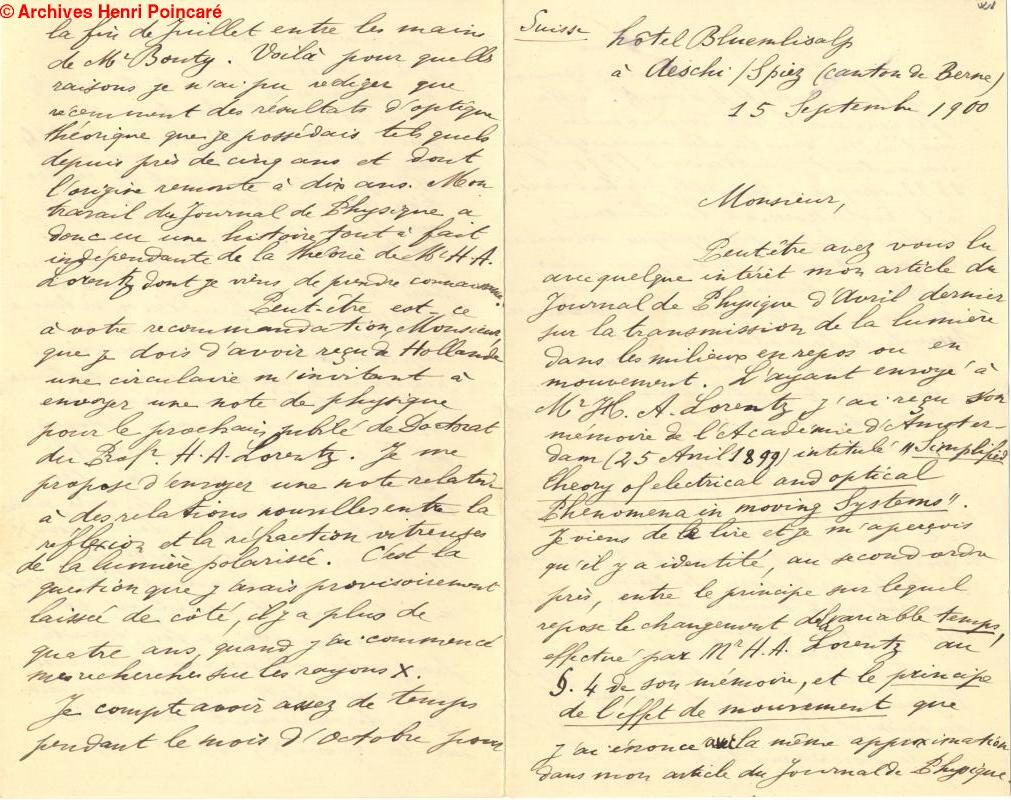 © Archives Henri Poincaré
Suisse
hôtel Bluemlisalp
à Aeschi / Spiez (canton de Berne)
15 Septembre 1900
Monsieur,
Peut-être avez vous lu
avec quelque intérêt mon article du
Journal de Physique d'Avril dernier
sur la transmission de la lumière
dans les milieux en repos ou en
mouvement. L'ayant envoyé à
Mr H. A. Lorentz j'ai reçu son
mémoire de l'Académie d'Amster-
dam (25 Avril 1899) intitulé "Simplified
theory of electrical and optical
Phenomena in moving Systems".
Je viens de le lire et je m'aperçois
qu'il y a identité, au second ordre
près, entre le principe sur lequel
repose le changement de la variable temps,
effectué par Mr H. A. Lorentz au
§. 4 de son mémoire, et le principe
de l'effet de mouvement que
j'ai énoncé avec la même approximation
dans mon article du Journal de Physique.
la fin de Juillet entre les mains
de Mr Bouty. Voilà pour quelles
raisons je n'ai pu rédiger que
récemment des résultats d'optique
théorique que je possédais tels quels
depuis près de cinq ans et dont
l'origine remonte à dix ans. Mon
travail du Journal de Physique a
donc eu une histoire tout à fait
indépendante de la théorie de Mr H. A.
Lorentz dont je viens de prendre connaissance.
Peut-être est-ce
à votre recommandation, Monsieur,
que je dois d'avoir reçu de Hollande
une circulaire m'invitant à
envoyer une note de physique
pour le prochain jubilé de Doctorat
du Profr. H. A. Lorentz. Je me
propose d'envoyer une note relative
à des relations nouvelles entre la
réflexion et la réfraction vitreuses
de la lumière polarisée. C'est la
question que j'avais provisoirement
laissée de côté, il y a plus de
quatre ans, quand j'ai commencé
mes recherches sur les rayons X.
Je compte avoir assez de temps
pendant le mois d'Octobre pour